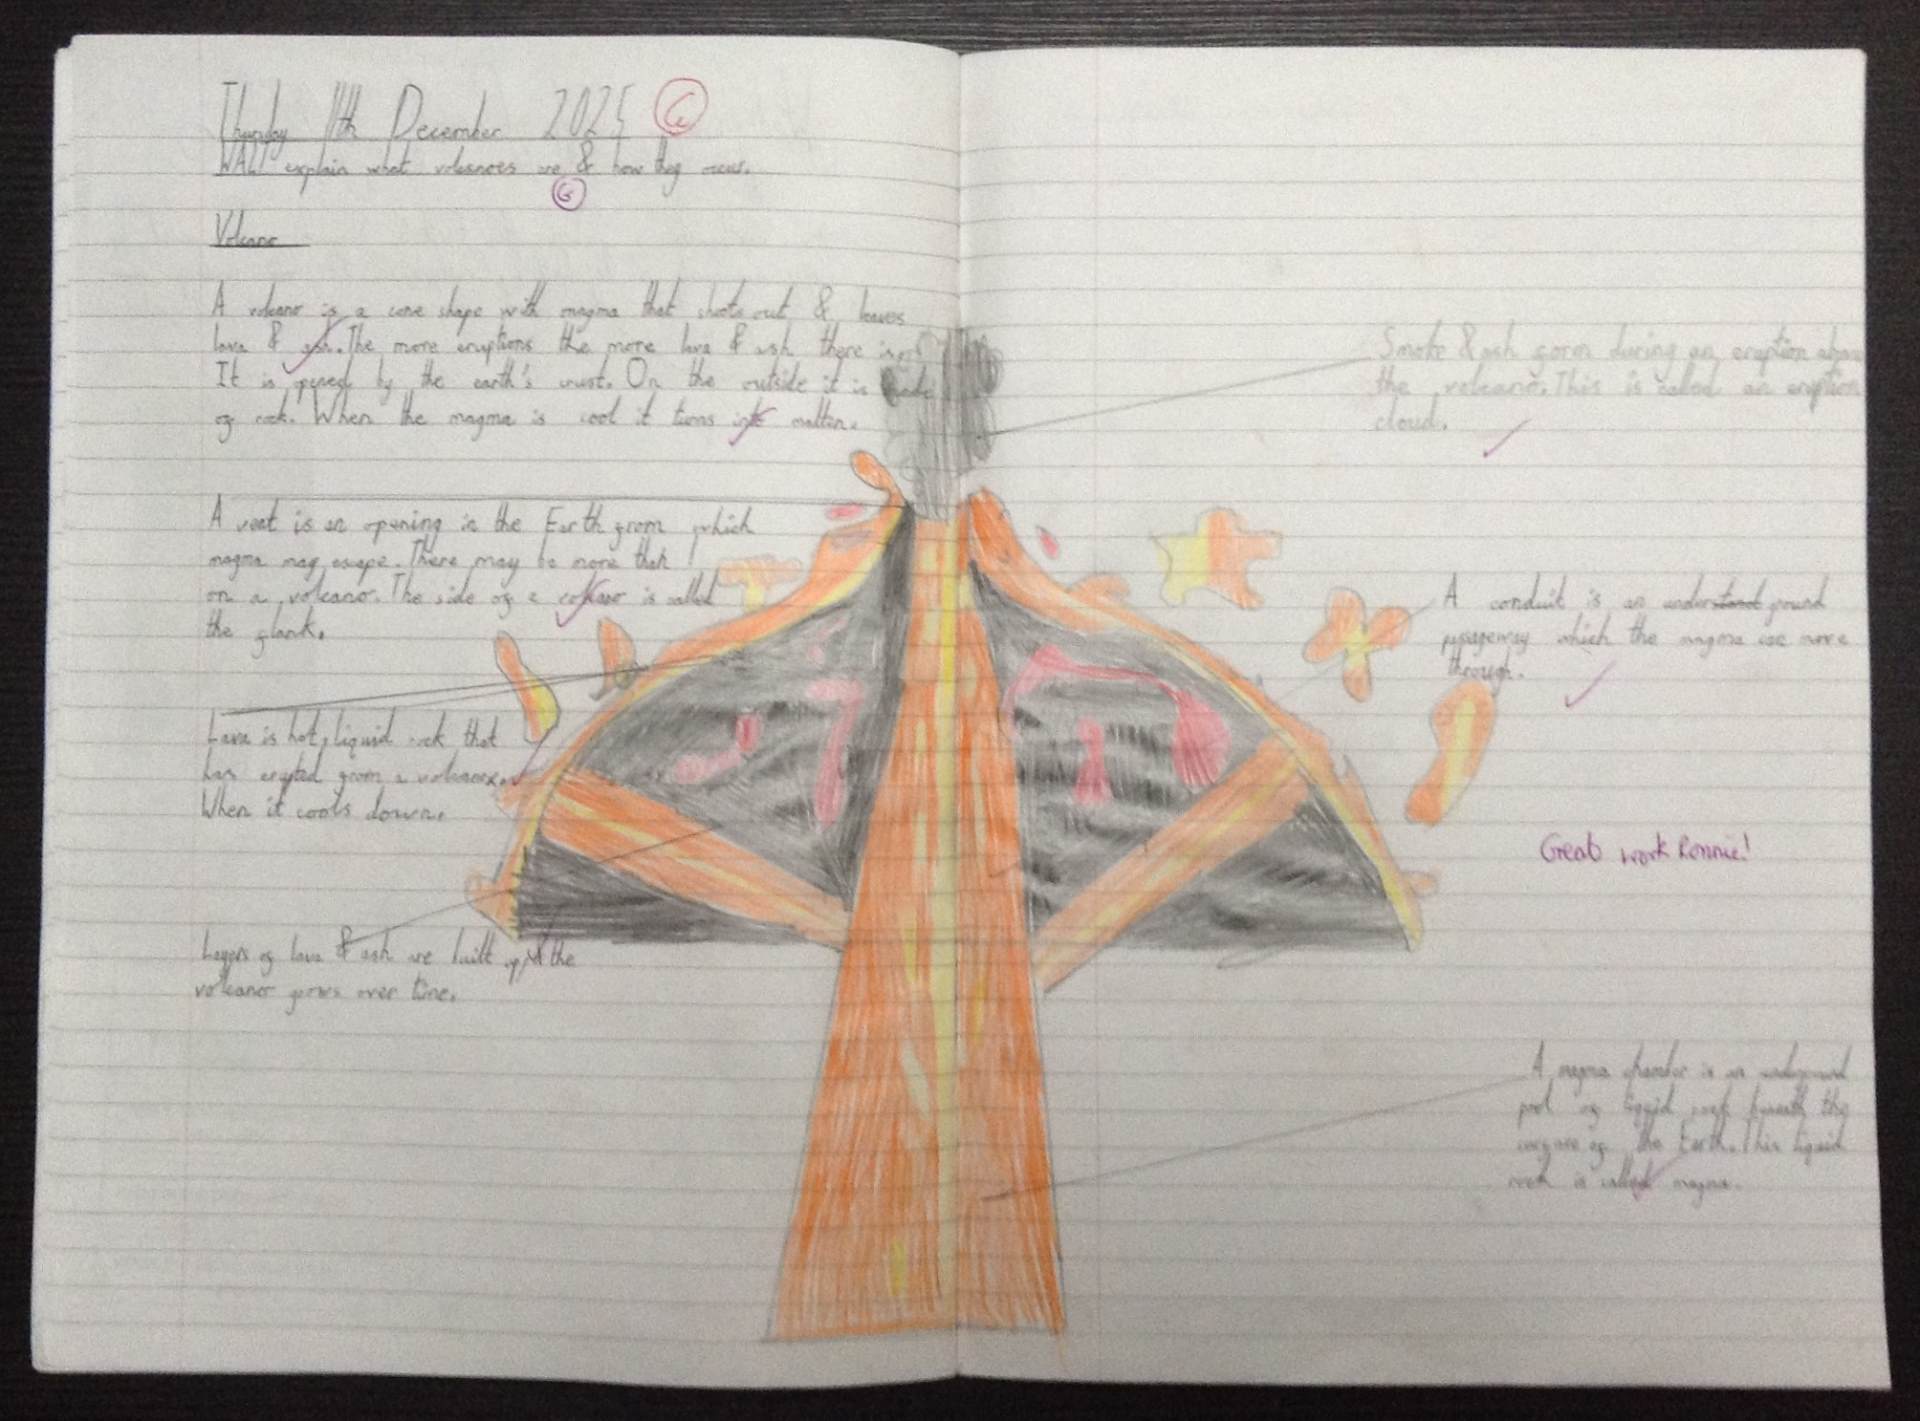 Thursday 11th December 2025 G
WALT explain what volcanoes are & how they occur.
G
Volcano
A volcano is a cone shape with magma that shoots out & leaves
lava & ash. The more eruptions the more lava & ash there is.
It is opened by the earth's crust. On the outside it is made
of rock. When the magma is cool it turns into molten.
Smoke & ash form during an eruption above
the volcano. This is called an eruption
cloud.
A vent is an opening in the Earth from which
magma may escape. There may be more than
on a volcano. The side of a volcano is called
the flank.
A conduit is an underground
passageway which the magma can move
through.
Lava is hot, liquid rock that
has erupted from a volcano.
When it cools down.
Great work Ronnie!
Layers of lava & ash are built up the
volcano grows over time.
A magma chamber is an underground
pool of liquid rock beneath the
of the Earth. This liquid
rock is called magma.